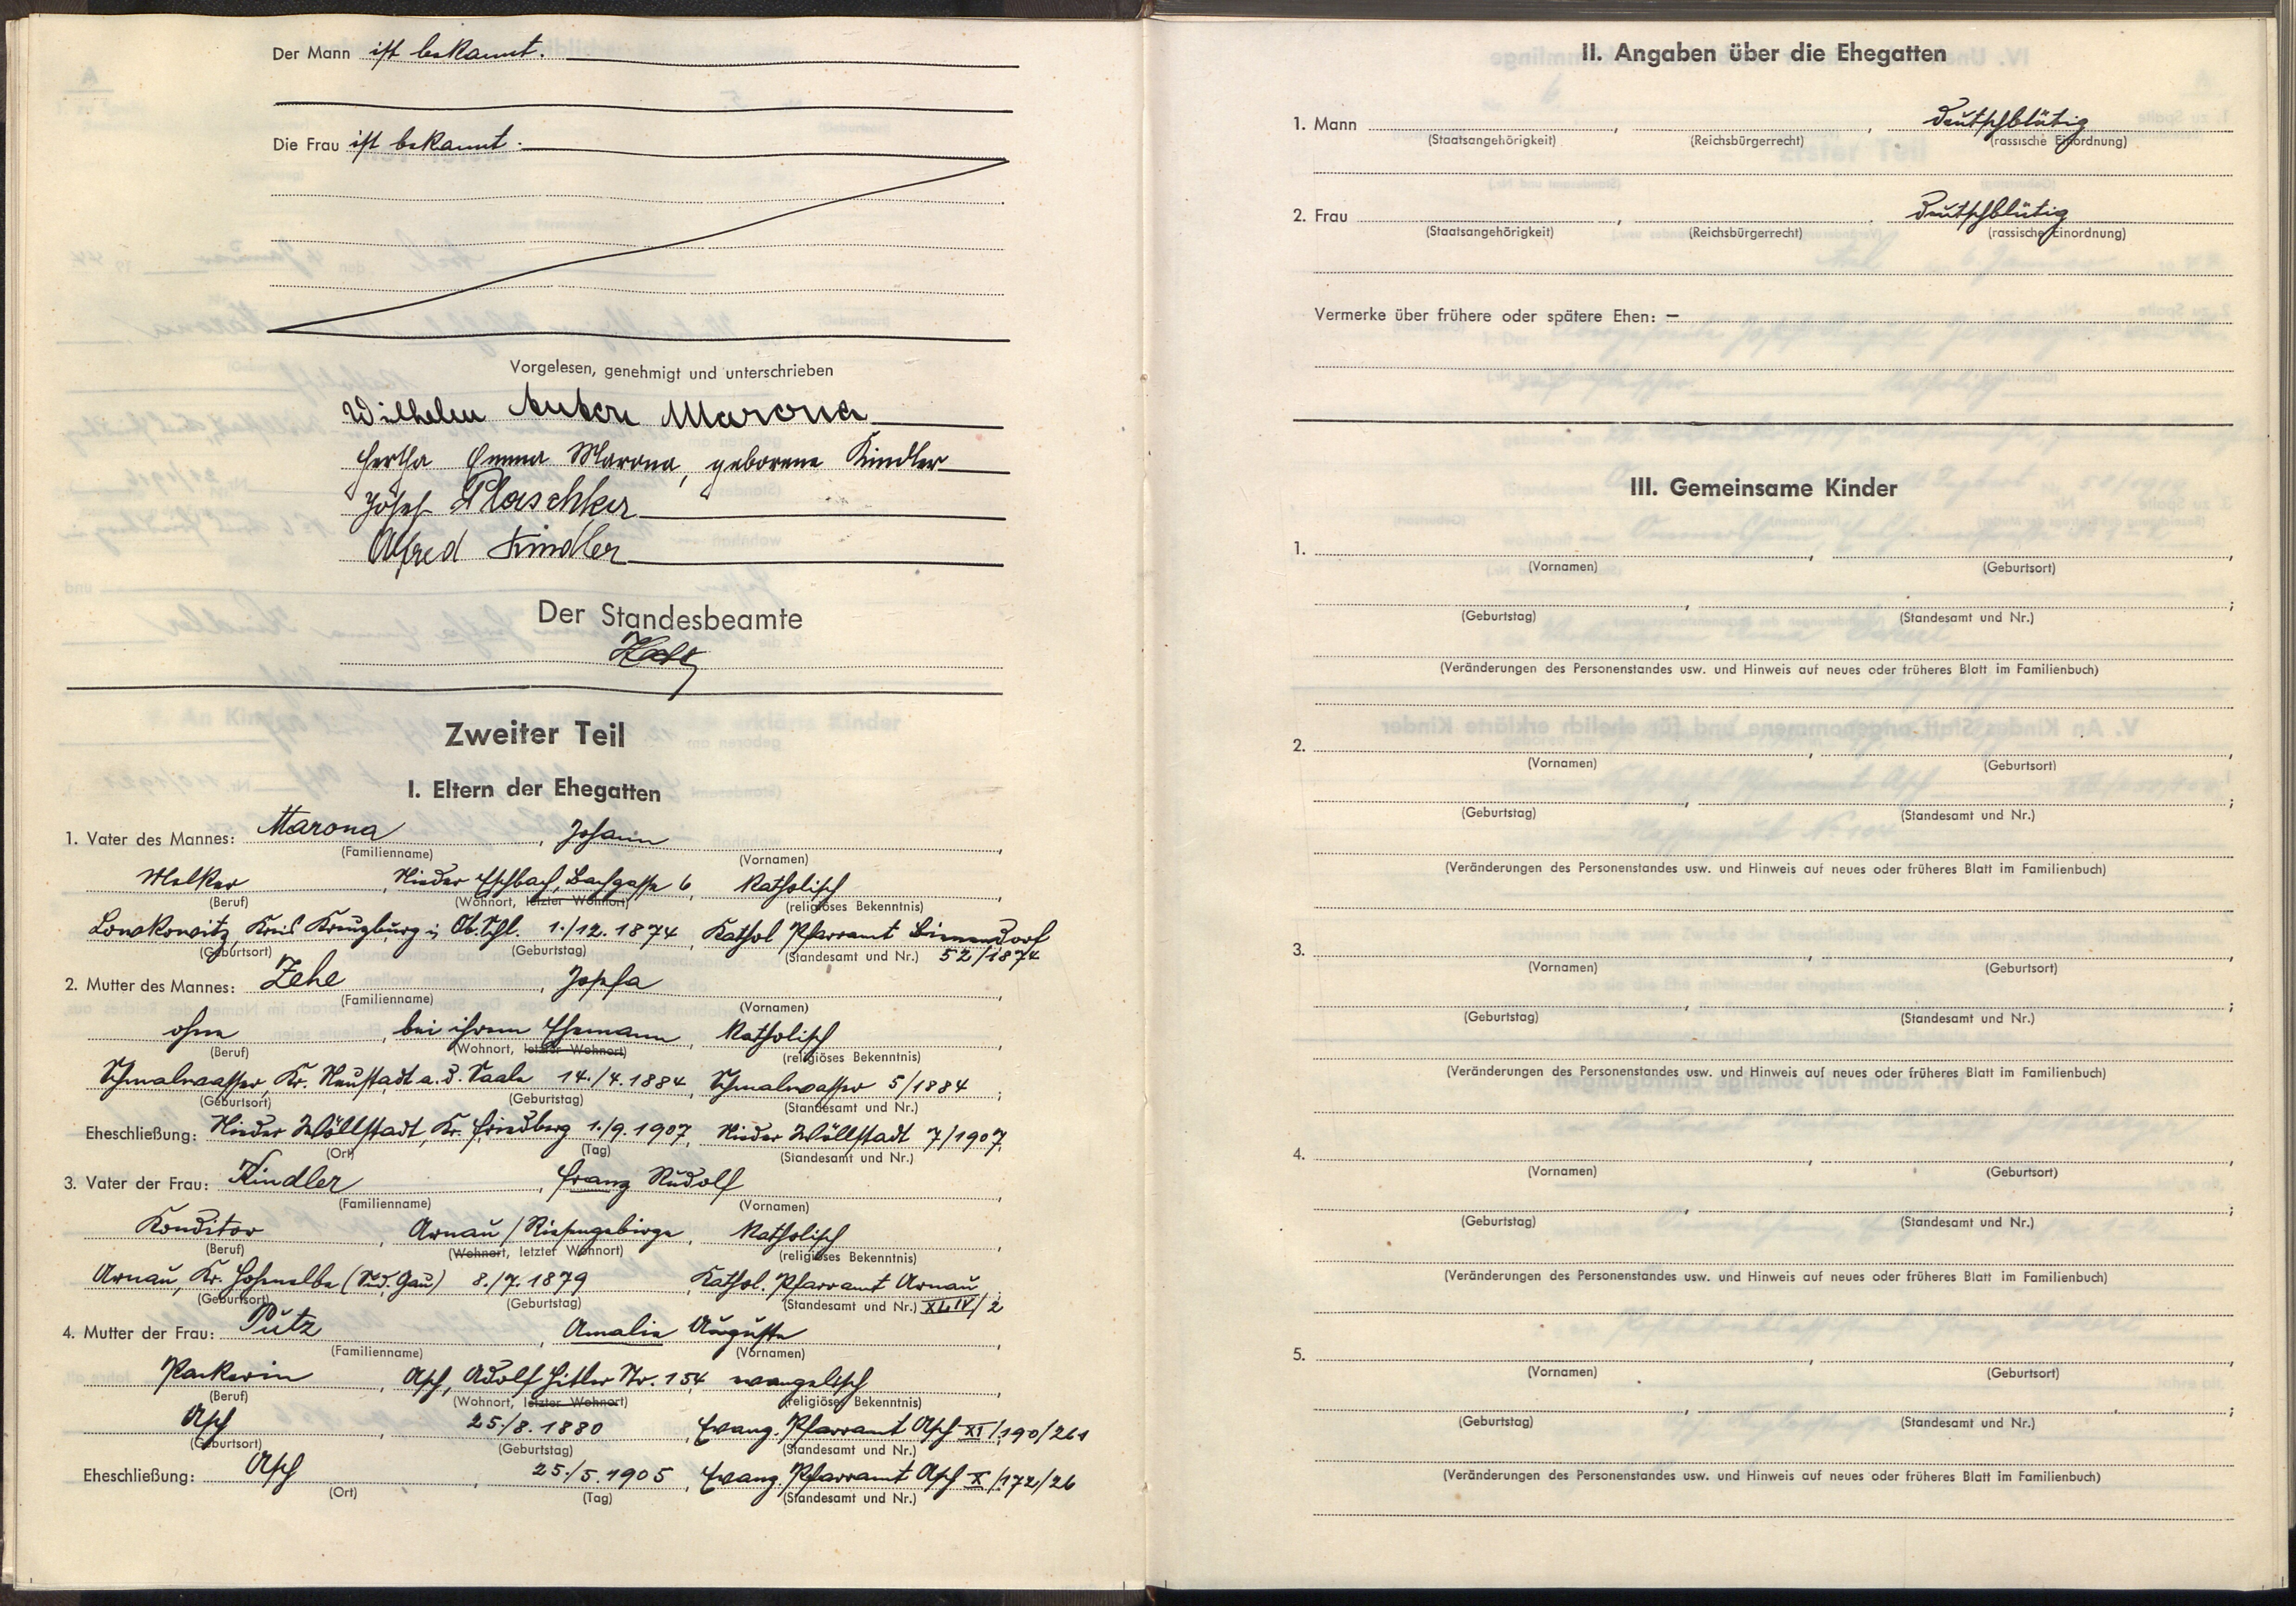 Der Mann ist bekannt.
Die Frau ist bekannt.
Vorgelesen, genehmigt und unterschrieben
Wilhelm Anton Marona
Hertha Emma Marona, geborene Kindler
Josef Plaschker
Alfred Kindler
Der Standesbeamte
Zweiter Teil
I. Eltern der Ehegatten
1. Vater des Mannes: Marona, Johann
(Familienname) (Vornamen)
Melker, Nieder Eschbach, Bachgasse 6, Katholisch,
(Beruf) (Wohnort, letzter Wohnort) (religiöses Bekenntnis)
Lowkowitz, Kreis Kreuzburg i. Ob. Schl. 1./12. 1874, Kathol Pfarramt
(Geburtsort) (Geburtstag) (Standesamt und Nr.) 52/1874
2. Mutter des Mannes: Zehe, Josefa
(Familienname) (Vornamen)
ohne, bei ihrem Ehemann, Katholisch,
(Beruf) (Wohnort, letzter Wohnort) (religiöses Bekenntnis)
Schmalwasser, Kr. Neustadt a. d. Saale 14./4. 1884, Schmalwasser 5/1884;
(Geburtsort) (Geburtstag) (Standesamt und Nr.)
Eheschließung: Nieder Wöllstadt, Kr. Friedberg 1./9. 1907, Nieder Wöllstadt 7/1907.
(Ort) (Tag) (Standesamt und Nr.)
3. Vater der Frau: Kindler, Franz Rudolf
(Familienname) (Vornamen)
Konditor, Arnau / Riesengebirge, Katholisch,
(Beruf) (Wohnort, letzter Wohnort) (religiöses Bekenntnis)
Arnau, Kr. Hohenelbe (Sud. Gau) 8./7. 1879, Kathol. Pfarramt Arnau;
(Geburtsort) (Geburtstag) (Standesamt und Nr.) XLIV/2
4. Mutter der Frau: Putz, Amalie Auguste
(Familienname) (Vornamen)
Packerin, Asch, Adolf Hitler Str. 154, evangelisch,
(Beruf) (Wohnort, letzter Wohnort) (religiöses Bekenntnis)
Asch, 25./8. 1880, Evang. Pfarramt Asch XI/190/261
(Geburtsort) (Geburtstag) (Standesamt und Nr.)
Eheschließung: Asch, 25./5. 1905, Evang. Pfarramt Asch X/172/26
(Ort) (Tag) (Standesamt und Nr.)
II. Angaben über die Ehegatten
1. Mann , , deutschblütig
(Staatsangehörigkeit) (Reichsbürgerrecht) (rassische Einordnung)
2. Frau , , deutschblütig
(Staatsangehörigkeit) (Reichsbürgerrecht) (rassische Einordnung)
Vermerke über frühere oder spätere Ehen: —
III. Gemeinsame Kinder
1. , ,
(Vornamen) (Geburtsort)
, ;
(Geburtstag) (Standesamt und Nr.)
(Veränderungen des Personenstandes usw. und Hinweis auf neues oder früheres Blatt im Familienbuch)
2. , ,
(Vornamen) (Geburtsort)
, ;
(Geburtstag) (Standesamt und Nr.)
(Veränderungen des Personenstandes usw. und Hinweis auf neues oder früheres Blatt im Familienbuch)
3. , ,
(Vornamen) (Geburtsort)
, ;
(Geburtstag) (Standesamt und Nr.)
(Veränderungen des Personenstandes usw. und Hinweis auf neues oder früheres Blatt im Familienbuch)
4. , ,
(Vornamen) (Geburtsort)
, ;
(Geburtstag) (Standesamt und Nr.)
(Veränderungen des Personenstandes usw. und Hinweis auf neues oder früheres Blatt im Familienbuch)
5. , ,
(Vornamen) (Geburtsort)
, ;
(Geburtstag) (Standesamt und Nr.)
(Veränderungen des Personenstandes usw. und Hinweis auf neues oder früheres Blatt im Familienbuch)